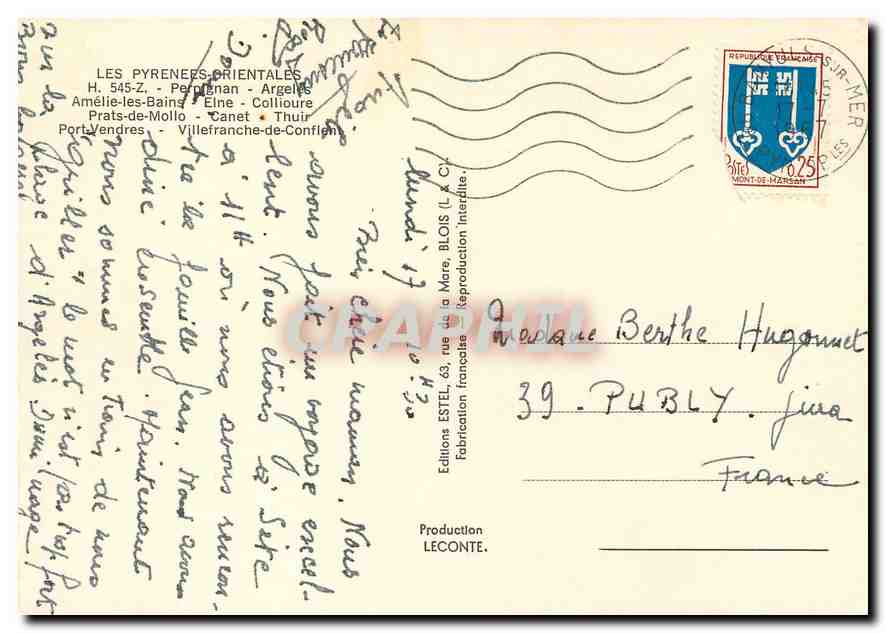 LES PYRENEES-ORIENTALES
H. 545-Z. - Perpignan - Argelès
Amélie-les-Bains - Elne - Collioure
Prats-de-Mollo - Canet - Thuir
Port-Vendres - Villefranche-de-Conflent
lundi 17 10 H 30
Bien chère maman. Nous
avons fait un voyage excel-
lent. Nous étions à Sète
à 11H où nous avons rencon-
tré la famille Jean. Nous avons
diné ensemble. Maintenant
nous sommes en train de nous
"griller" le mot n'est pas trop fort
sur la plage d'Argelès
Editions ESTEL, 63, rue de la Mare, BLOIS (L. & C).
Fabrication française - Reproduction Interdite.
REPUBLIQUE FRANÇAISE
POSTES 0,25
MONT-DE-MARSAN
SUR-MER
CPARAMA
Madame Berthe Hugonnet
39 - PUBLY. Jura
France
Production
LECONTE.